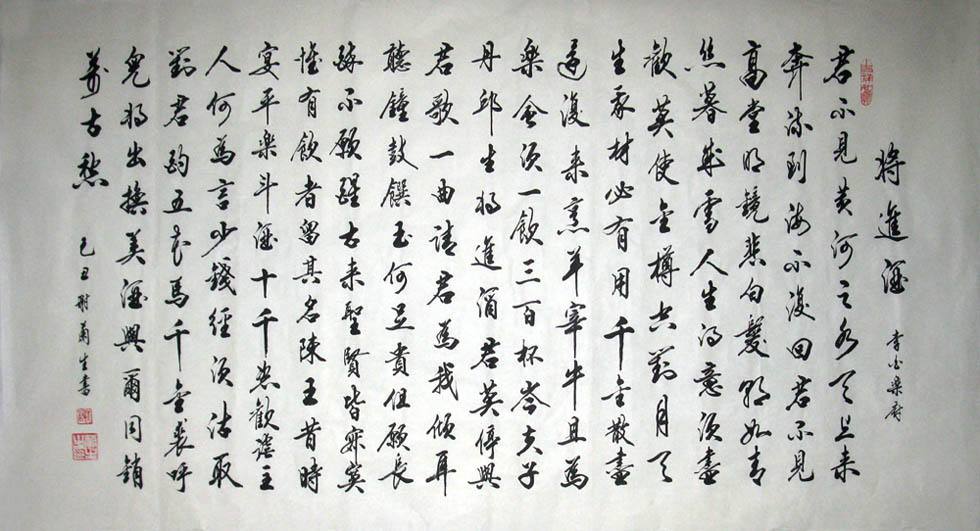 將進酒 李白樂府
君不見黃河之水天上来
奔流到海不復回君不見
高堂明鏡悲白髮朝如青
絲暮成雪人生得意須盡
歡莫使金樽空對月天
生我材必有用千金散盡
還復来烹羊宰牛且為
樂會須一飲三百杯岑夫子
丹邱生將進酒君莫停與
君歌一曲請君為我傾耳
聽鐘鼓饌玉何足貴但願長
醉不願醒古来聖賢皆寂寞
惟有飲者留其名陳王昔時
宴平樂斗酒十千恣歡謔主
人何為言少錢經須沽取
對君酌五花馬千金裘呼
兒將出換美酒與爾同銷
萬古愁 己丑 生書